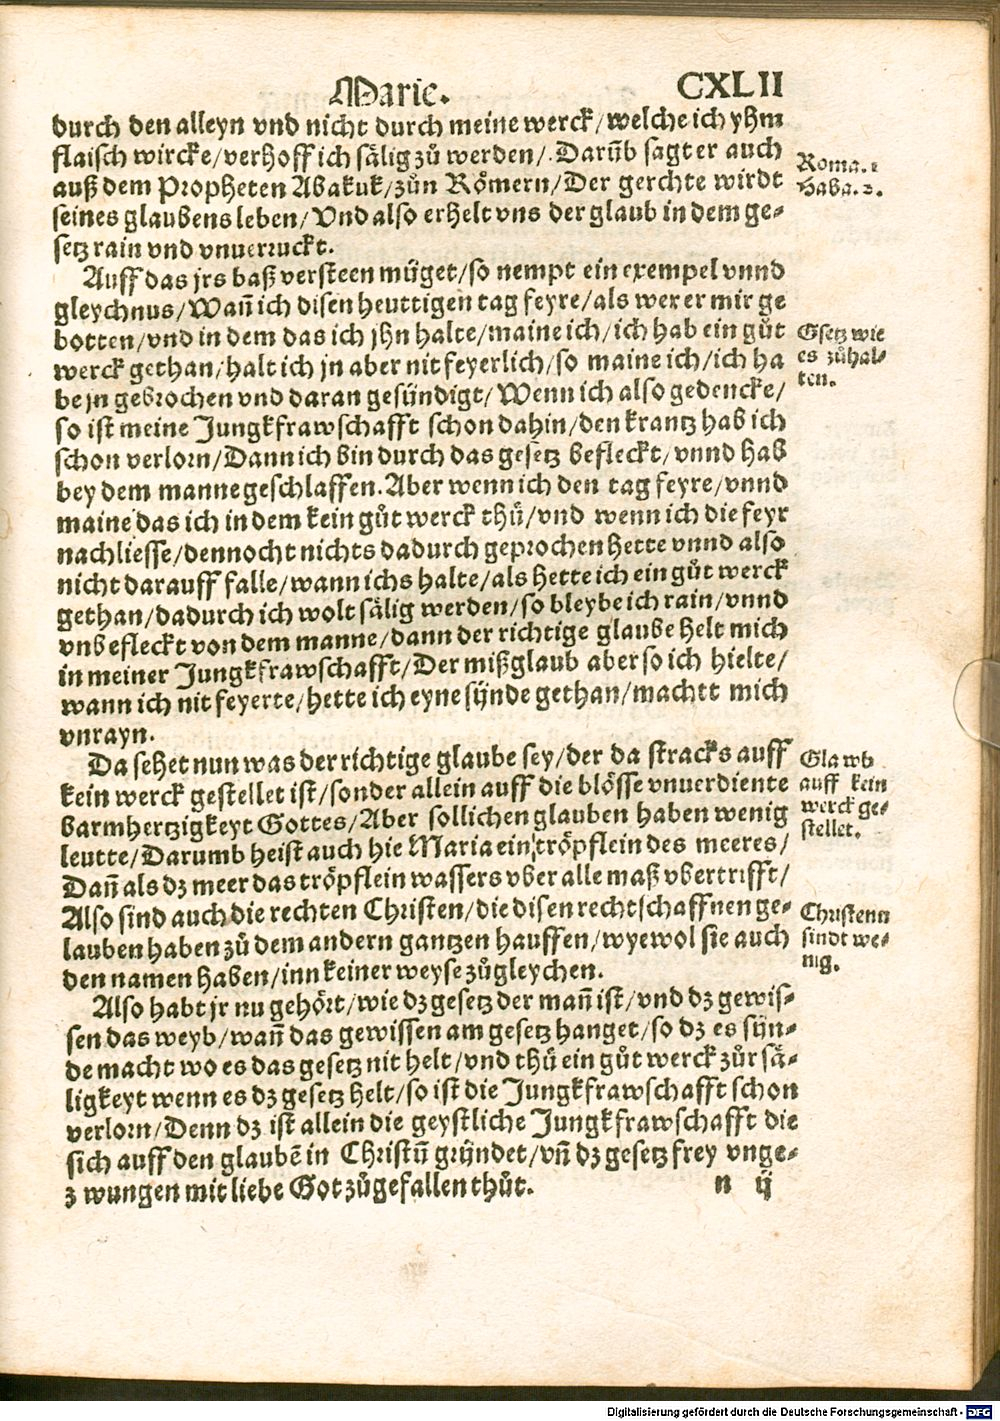 Marie. CXLII
durch den alleyn vnd nicht durch meine werck/welche ich yhm
flaisch wircke/verhoff ich sålig zů werden/. Darūb sagt er auch
auß dem Propheten Abakuk/zůn Rômern/Der gerchte wirdt
seines glaubens leben/Vnd also erhelt vns der glaub in dem ge-
setz rain vnd vnuerruckt.
Roma. 1
Haba. 2.
Auff das jrs baß versteen můget/so nempt ein exempel vnnd
gleychnus/Wañ ich disen heuttigen tag feyre/als wer er mir ge
botten/vnd in dem das ich jhn halte/maine ich/ich hab ein gůt
werck gethan/halt ich jn aber nit feyerlich/so maine ich/ich ha
be jn gebrochen vnd daran gesündigt/Wenn ich also gedencke/
so ist meine Jungkfrawschafft schon dahin/den krantz hab ich
schon verlorn/Dann ich bin durch das gesetz befleckt/vnnd hab
bey dem manne geschlaffen. Aber wenn ich den tag feyre/vnnd
maine das ich in dem kein gůt werck thů/vnd wenn ich die feyr
nachliesse/dennocht nichts dadurch geprochen hette vnnd also
nicht darauff falle/wann ichs halte/als hette ich ein gůt werck
gethan/dadurch ich wolt sålig werden/so bleybe ich rain/vnnd
vnbefleckt von dem manne/dann der richtige glaube helt mich
in meiner Jungkfrawschafft/Der mißglaub aber so ich hielte/
wann ich nit feyerte/hette ich eyne sünde gethan/machtt mich
vnrayn.
Gsetz wie
es zůhal-
ten.
Da sehet nun was der richtige glaube sey/der da stracks auff
kein werck gestellet ist/sonder allein auff die blôsse vnuerdiente
barmhertzigkeyt Gottes/Aber sollichen glauben haben wenig
leutte/Darumb heist auch hie Maria ein trôpflein des meeres/
Dañ als dz meer das trôpflein wassers vber alle maß vbertrifft/
Also sind auch die rechten Christen/die disen rechtschaffnen ge-
lauben haben zů dem andern gantzen hauffen/wyewol sie auch
den namen haben/inn keiner weyse zůgleychen.
Glawb
auff kein
werck ge-
stellet.
Christenn
sindt we-
nig.
Also habt jr nu gehôrt/wie dz gesetz der mañ ist/vnd dz gewis-
sen das weyb/wañ das gewissen am gesetz hanget/so dz es sün-
de macht wo es das gesetz nit helt/vnd thů ein gůt werck zůr så-
ligkeyt wenn es dz gesetz helt/so ist die Jungkfrawschafft schon
verlorn/Denn dz ist allein die geystliche Jungkfrawschafft die
sich auff den glaubē in Christū gründet/vñ dz gesetz frey vnge-
zwungen mit liebe Got zůgefallen thůt. n ij
Digitalisierung gefördert durch die Deutsche Forschungsgemeinschaft - DFG